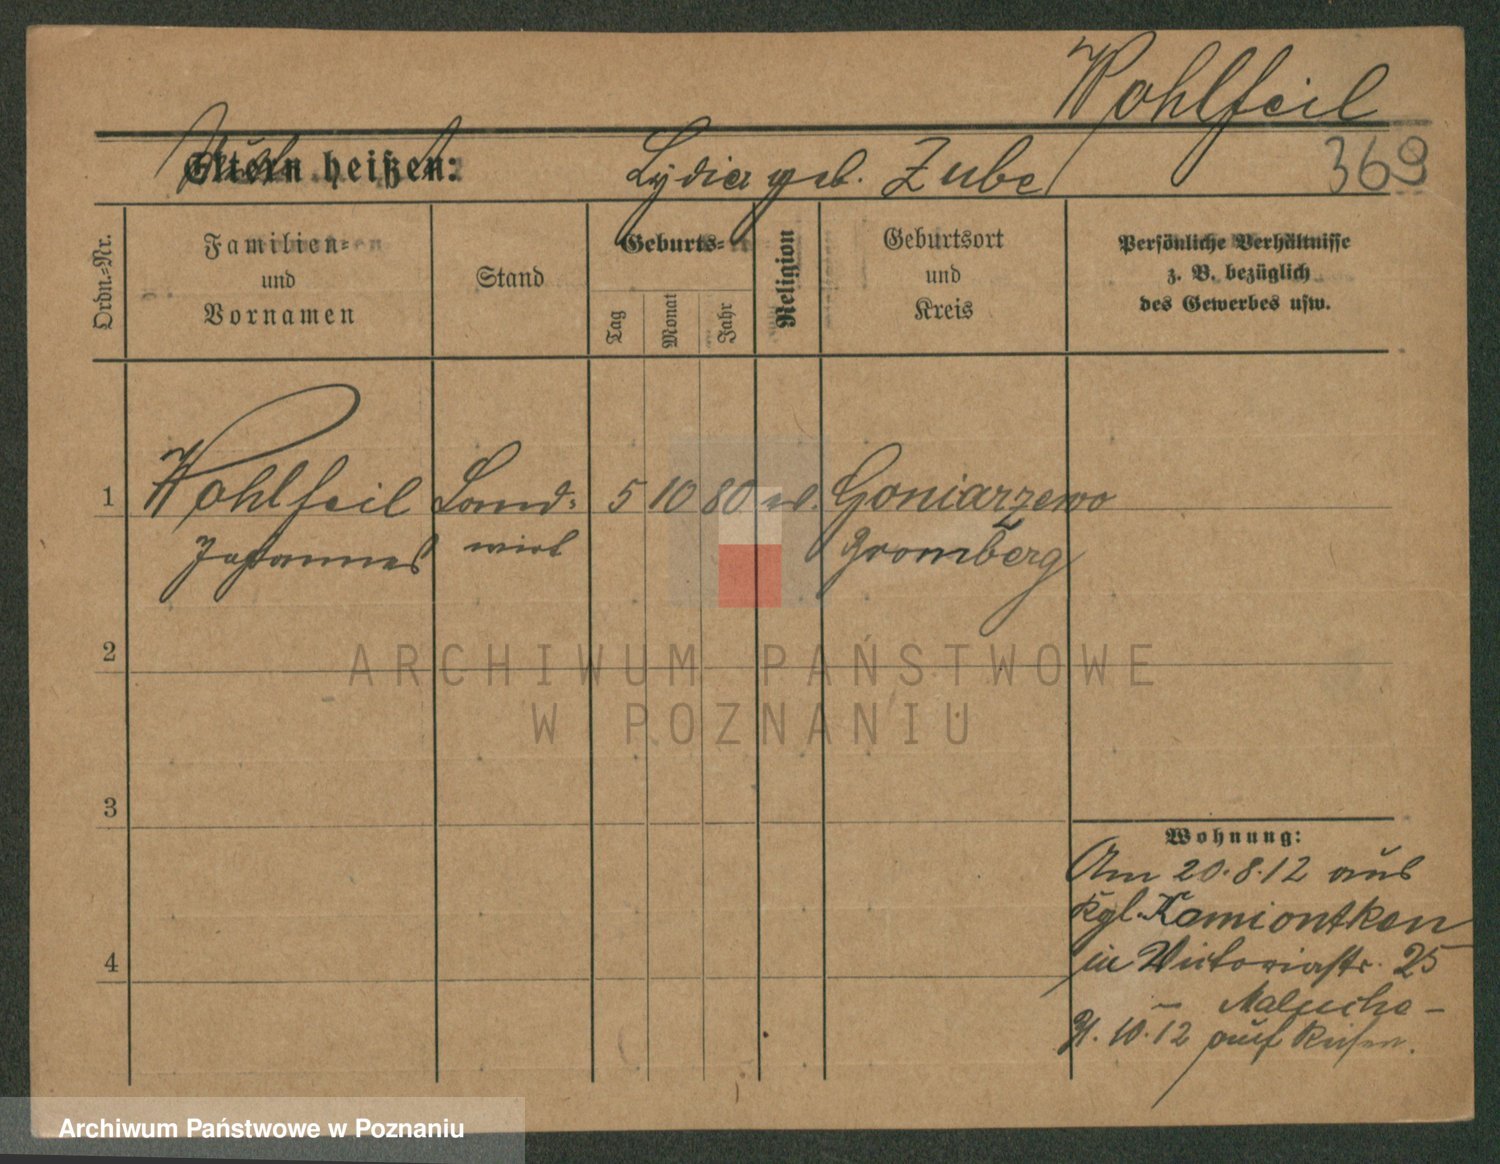 Wohlfeil
Eltern heißen:
Lydia geb. Zube
369
Ordn.-Nr.
Familien-
und
Vornamen
Stand
Geburts-
Tag
Monat
Jahr
Religion
Geburtsort
und
Kreis
Persönliche Verhältnisse
z. B. bezüglich
des Gewerbes usw.
1 Wohlfeil Land- 5 10 80 ev. Goniarzewo
Johannes wirt Bromberg
2
3
4
Wohnung:
Am 20.8.12 aus
Kgl. Kamiontken
in Victoriastr. 25
– Malucha –
31.10.12 auf Reisen.
ARCHIWUM PAŃSTWOWE
W POZNANIU
Archiwum Państwowe w Poznaniu